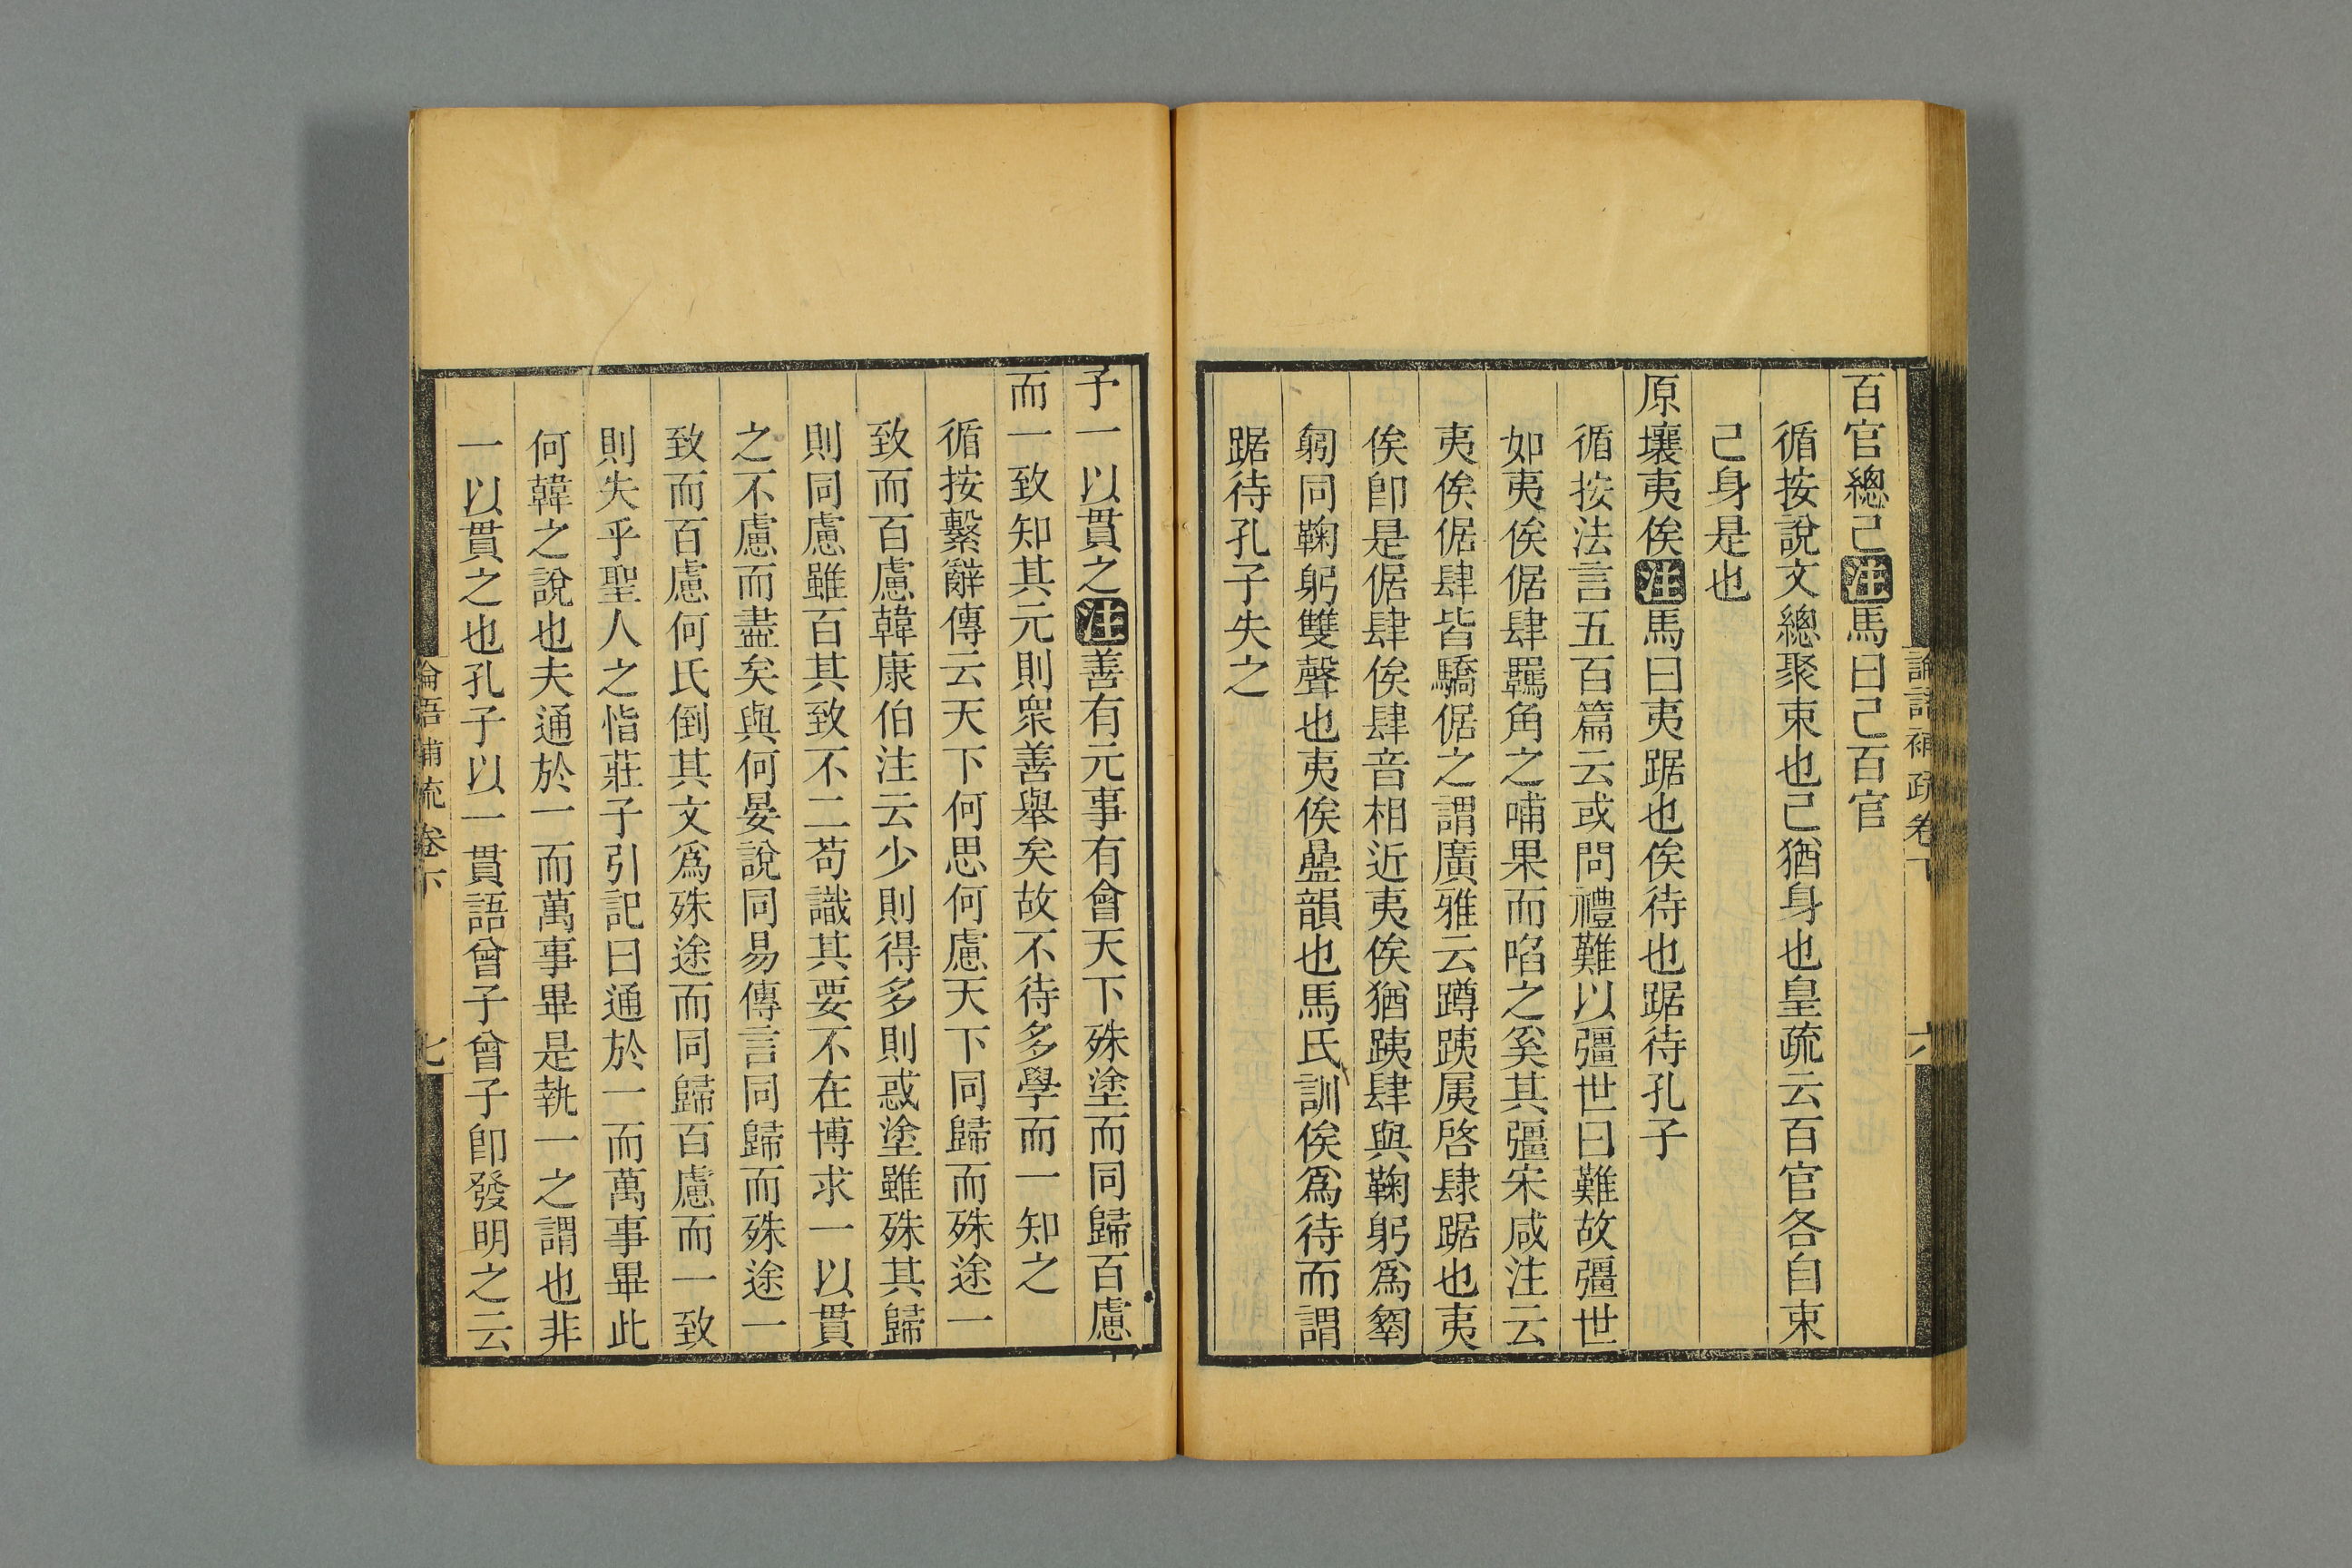 論語補疏卷下
六
百官總己注馬曰己百官
循按說文總聚束也己猶身也皇疏云百官各自束
己身是也
原壤夷俟注馬曰夷踞也俟待也踞待孔子
循按法言五百篇云或問禮難以彊世曰難故彊世
如夷俟倨肆羈角之哺果而啗之奚其彊宋咸注云
夷俟倨肆皆驕倨之謂廣雅云蹲跠𡱝啓肆踞也夷
俟卽是倨肆俟肆音相近夷俟猶跠肆與鞠躬爲𥶶
躬同鞠躬雙聲也夷俟疊韻也馬氏訓俟爲待而謂
踞待孔子失之
予一以貫之注善有元事有會天下殊塗而同歸百慮
而一致知其元則眾善舉矣故不待多學而一知之
循按繫辭傳云天下何思何慮天下同歸而殊途一
致而百慮韓康伯注云少則得多則惑塗雖殊其歸
則同慮雖百其致不二苟識其要不在博求一以貫
之不慮而盡矣與何晏說同易傳言同歸而殊途一
致而百慮何氏倒其文爲殊途而同歸百慮而一致
則失乎聖人之恉莊子引記曰通於一而萬事畢此
何韓之說也夫通於一而萬事畢是執一之謂也非
一以貫之也孔子以一貫語曾子曾子卽發明之云
論語補疏卷下
七